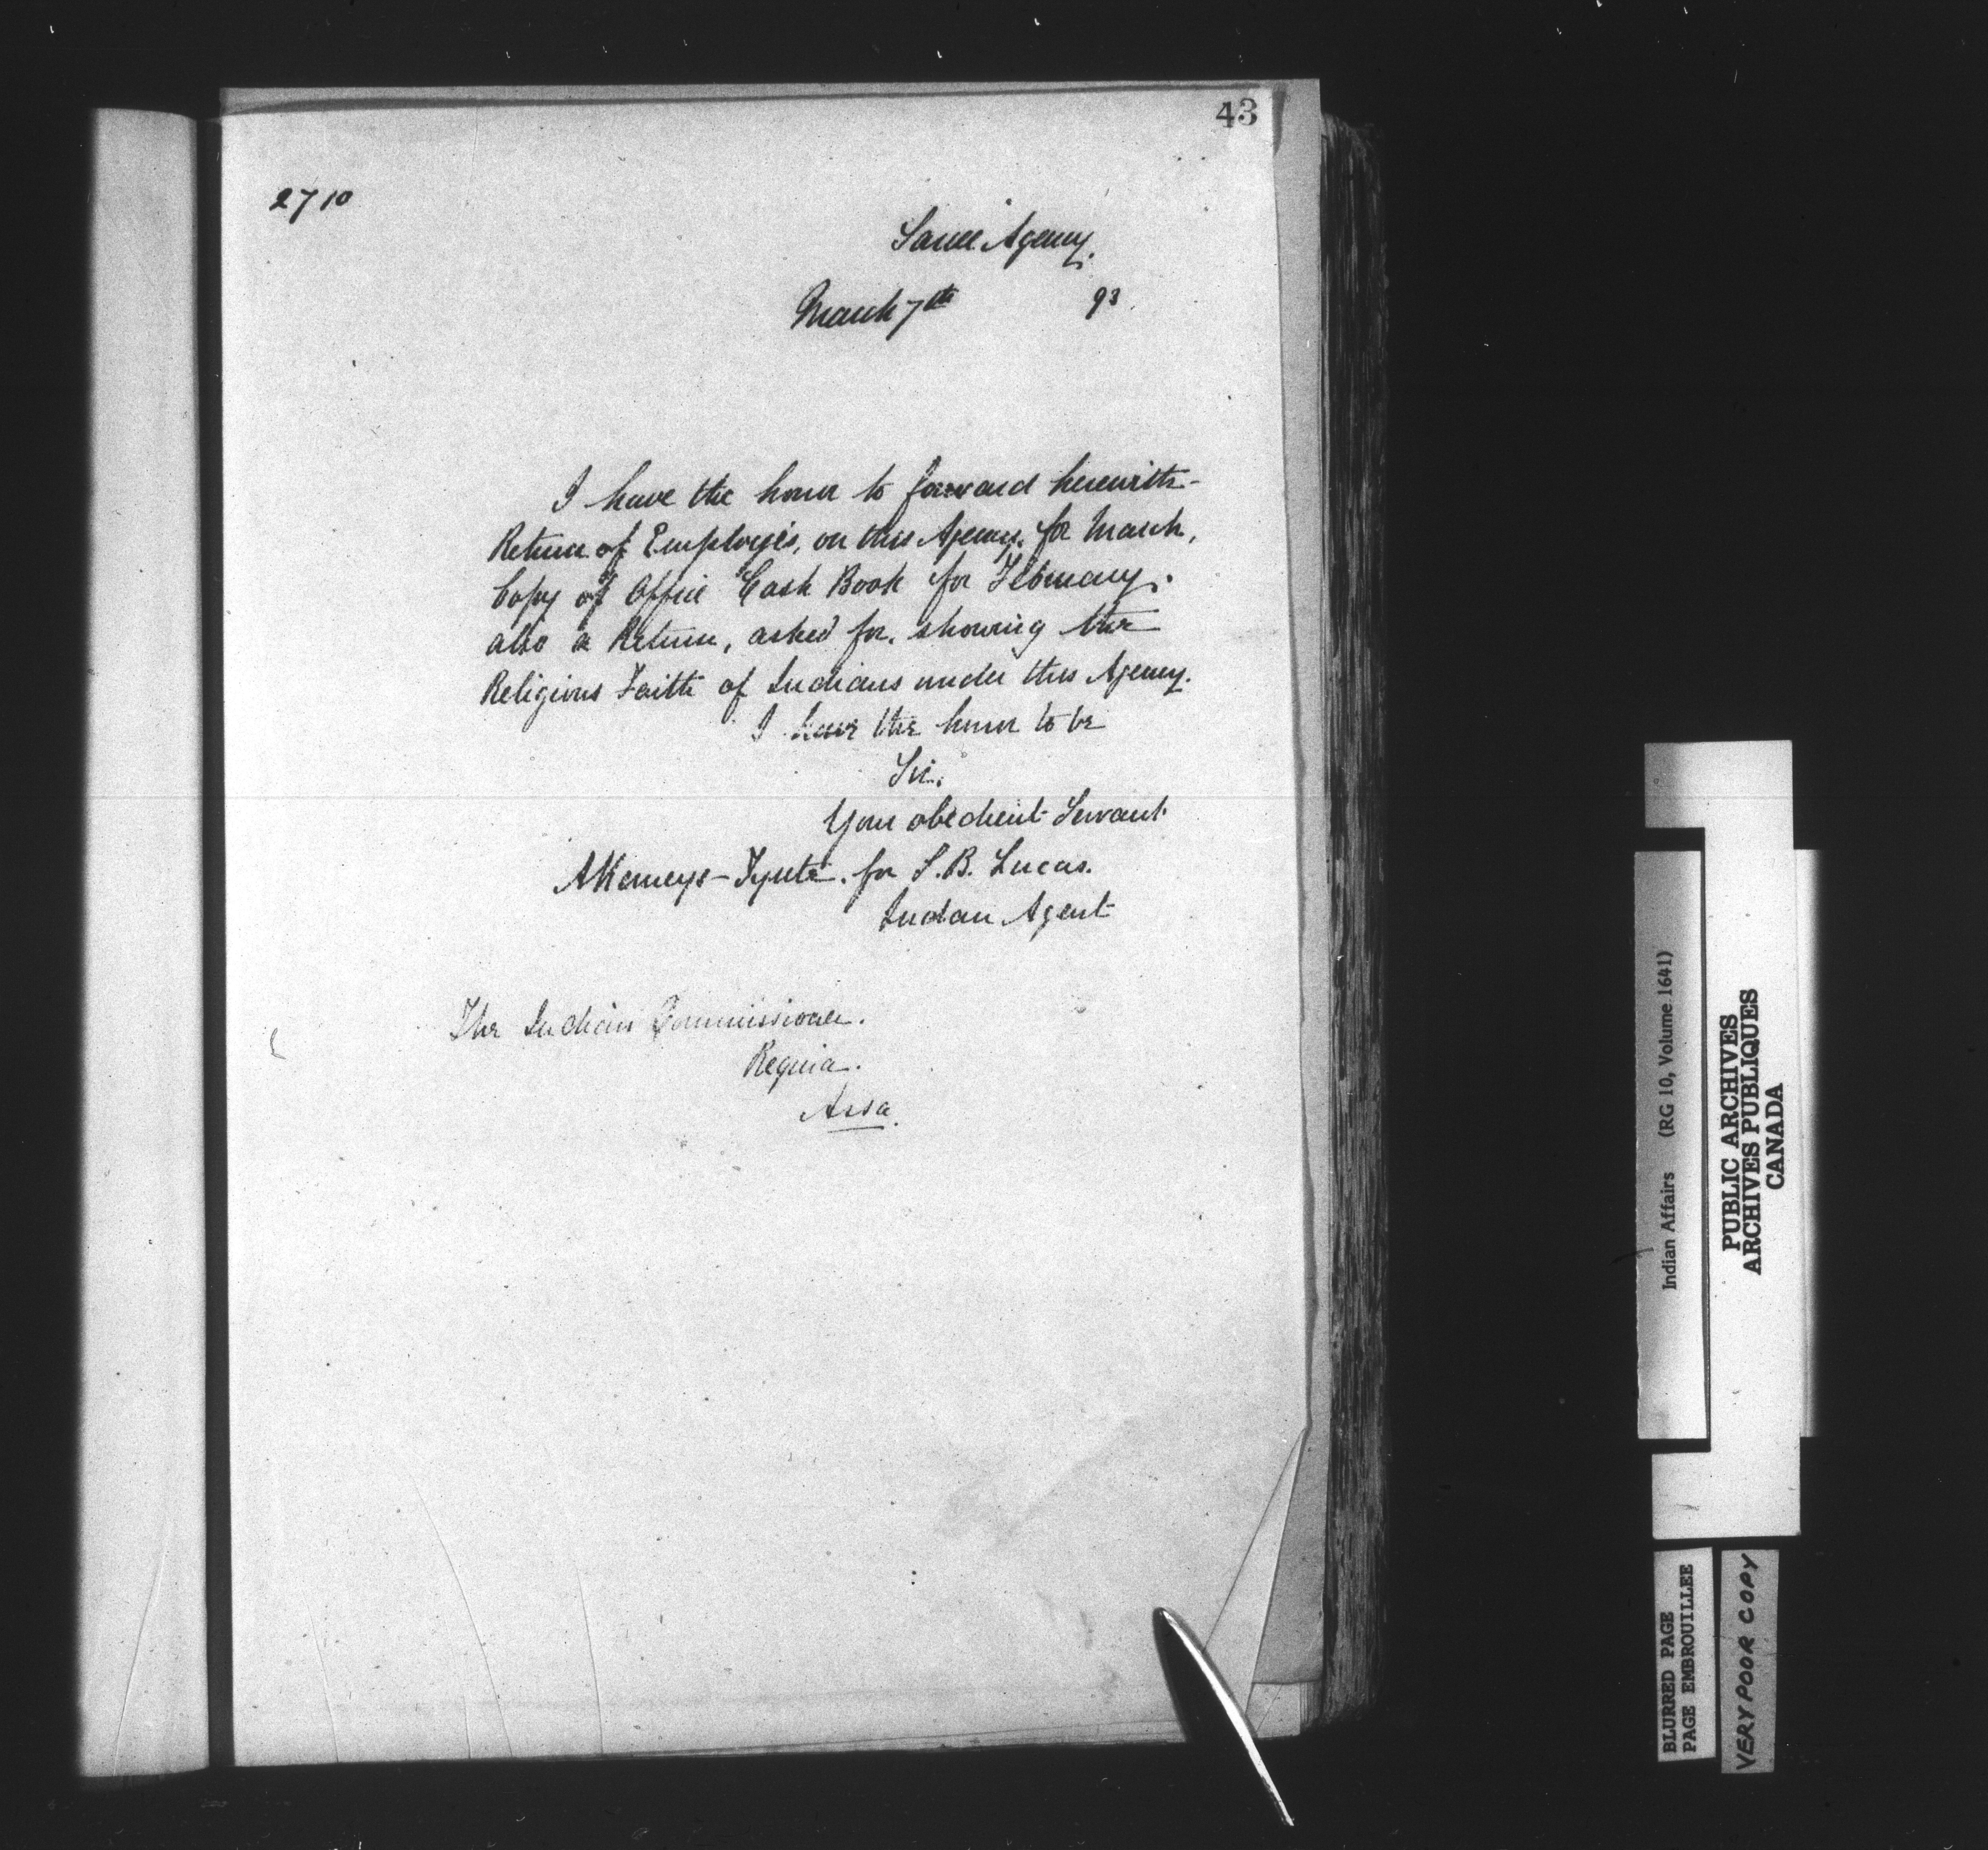 43
2710
Sarcee Agency.
March 7th 93.
I have the honor to forward herewith
Return of Employés, on this Agency, for March,
Copy of Office Cash Book for February.
also a Return, asked for, showing the
Religious Faith of Indians under this Agency.
I have the honor to be
Sir.
Your obedient Servant
AKemeys-Tynte. for S.B. Lucas.
Indian Agent
The Indian Commissioner.
Regina.
Assa.
Indian Affairs (RG 10, Volume 1641)
PUBLIC ARCHIVES
ARCHIVES PUBLIQUES
CANADA
BLURRED PAGE
PAGE EMBROUILLEE
VERY POOR COPY